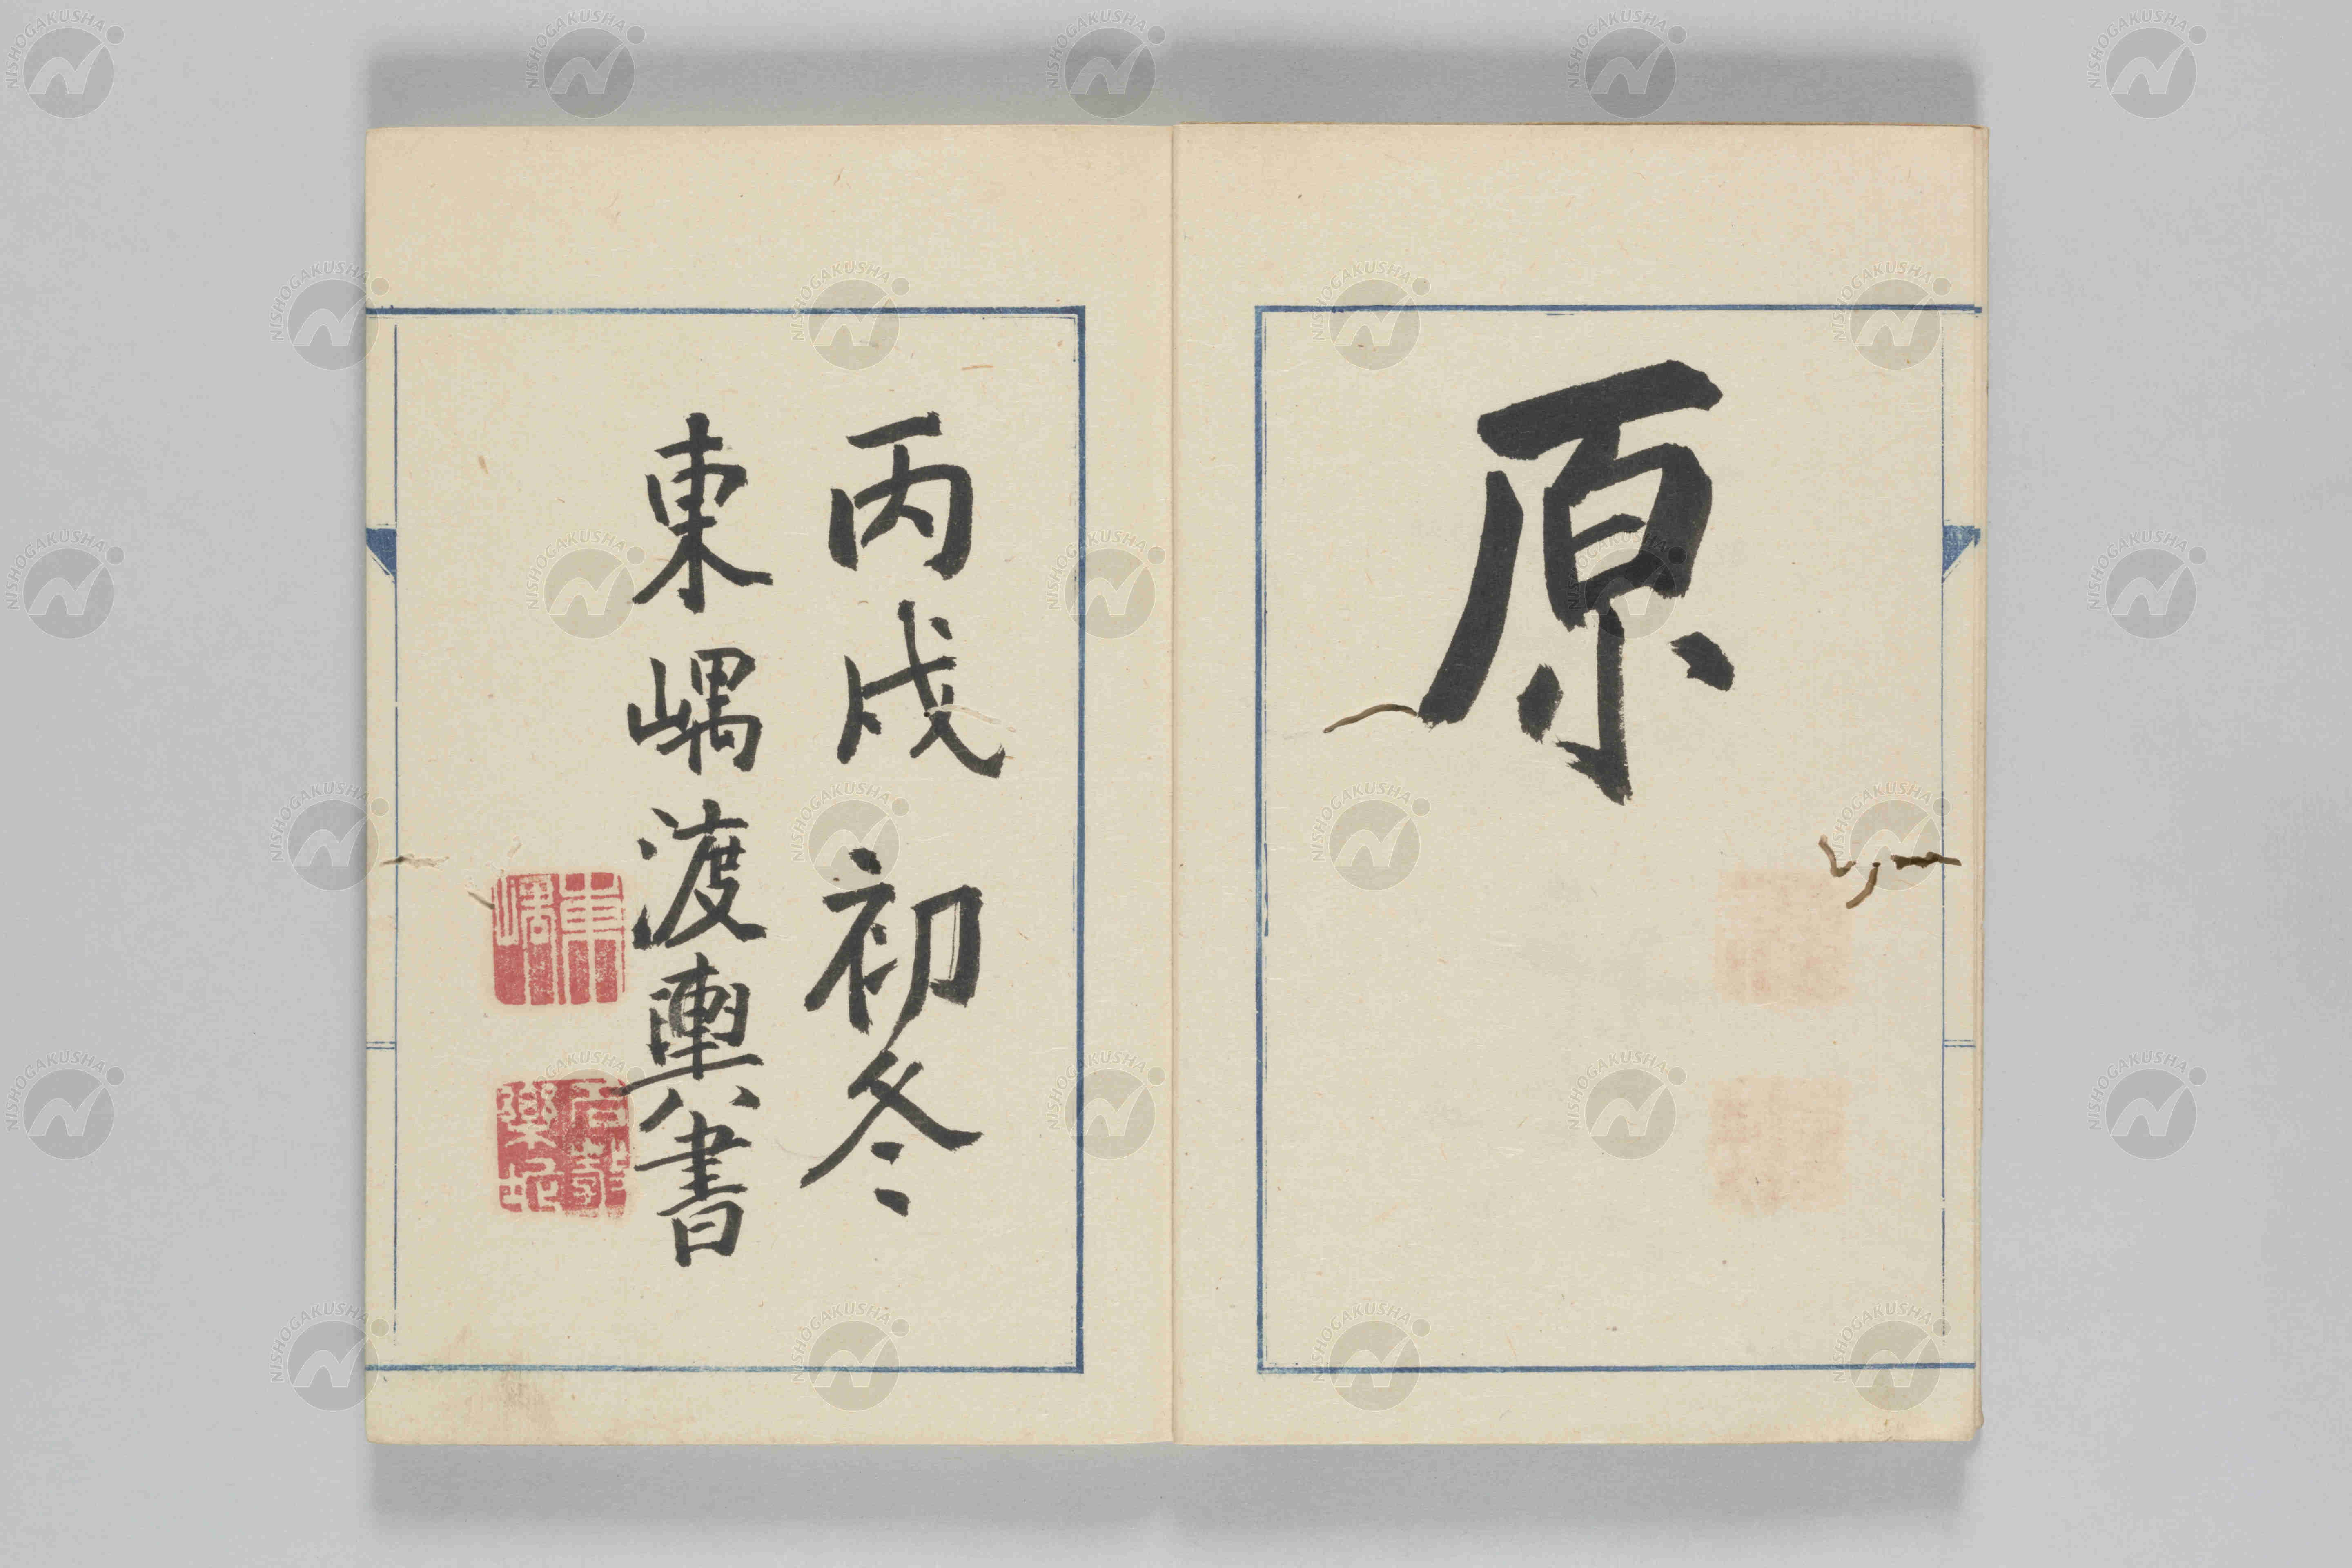 原
丙戌初冬
東嵎渡輿書
NISHOGAKUSHA